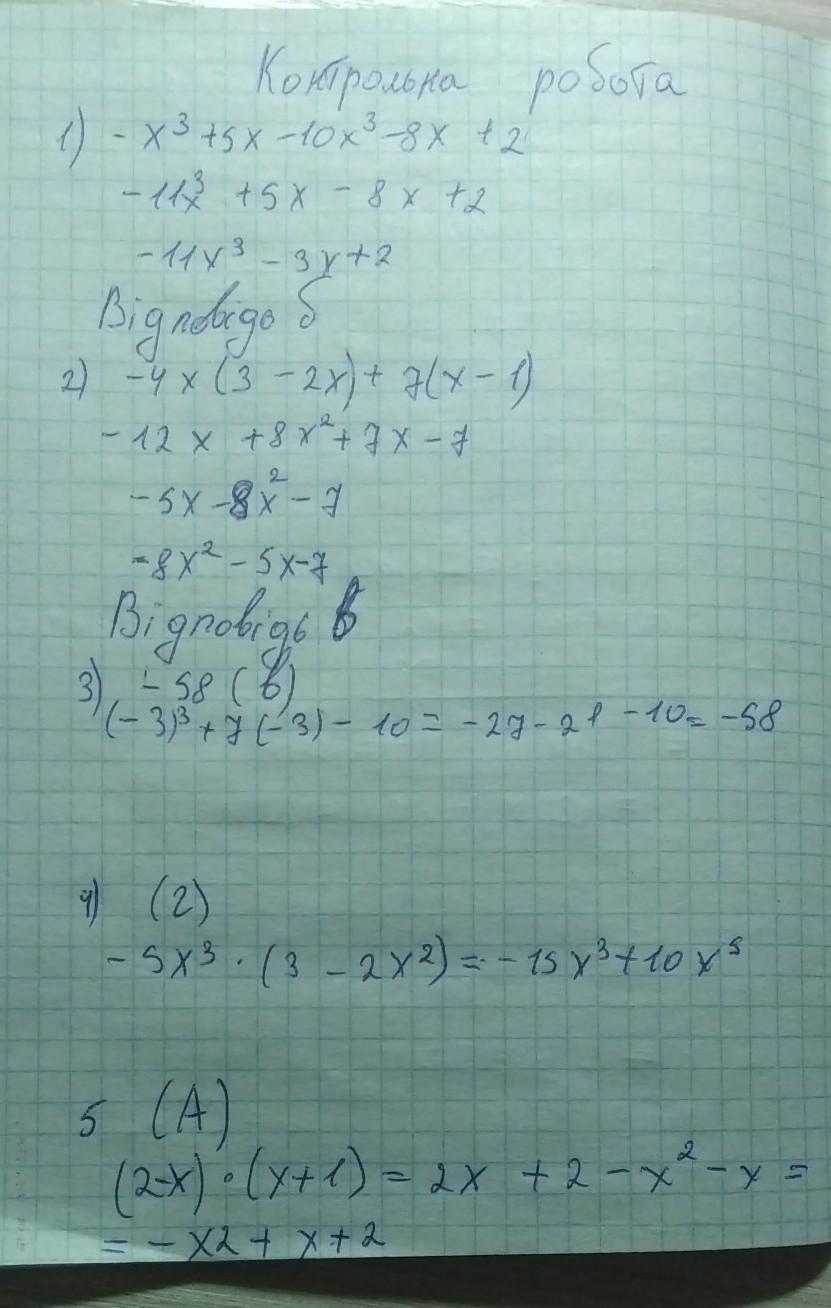 Контрольна робота
1) - x³ + 5x - 10x³ - 8x + 2
- 11x³ + 5x - 8x + 2
- 11x³ - 3x + 2
Відповідь б
2) - 4x (3 - 2x) + 7(x - 1)
- 12x + 8x² + 7x - 7
- 5x - 8x² - 7
- 8x² - 5x - 7
Відповідь в
3) - 58 (в)
(-3)³ + 7(-3) - 10 = -27 - 21 - 10 = -58
4) (2)
- 5x³ · (3 - 2x²) = - 15x³ + 10x⁵
5 (А)
(2-x) · (x+1) = 2x + 2 - x² - x =
= - x2 + x + 2